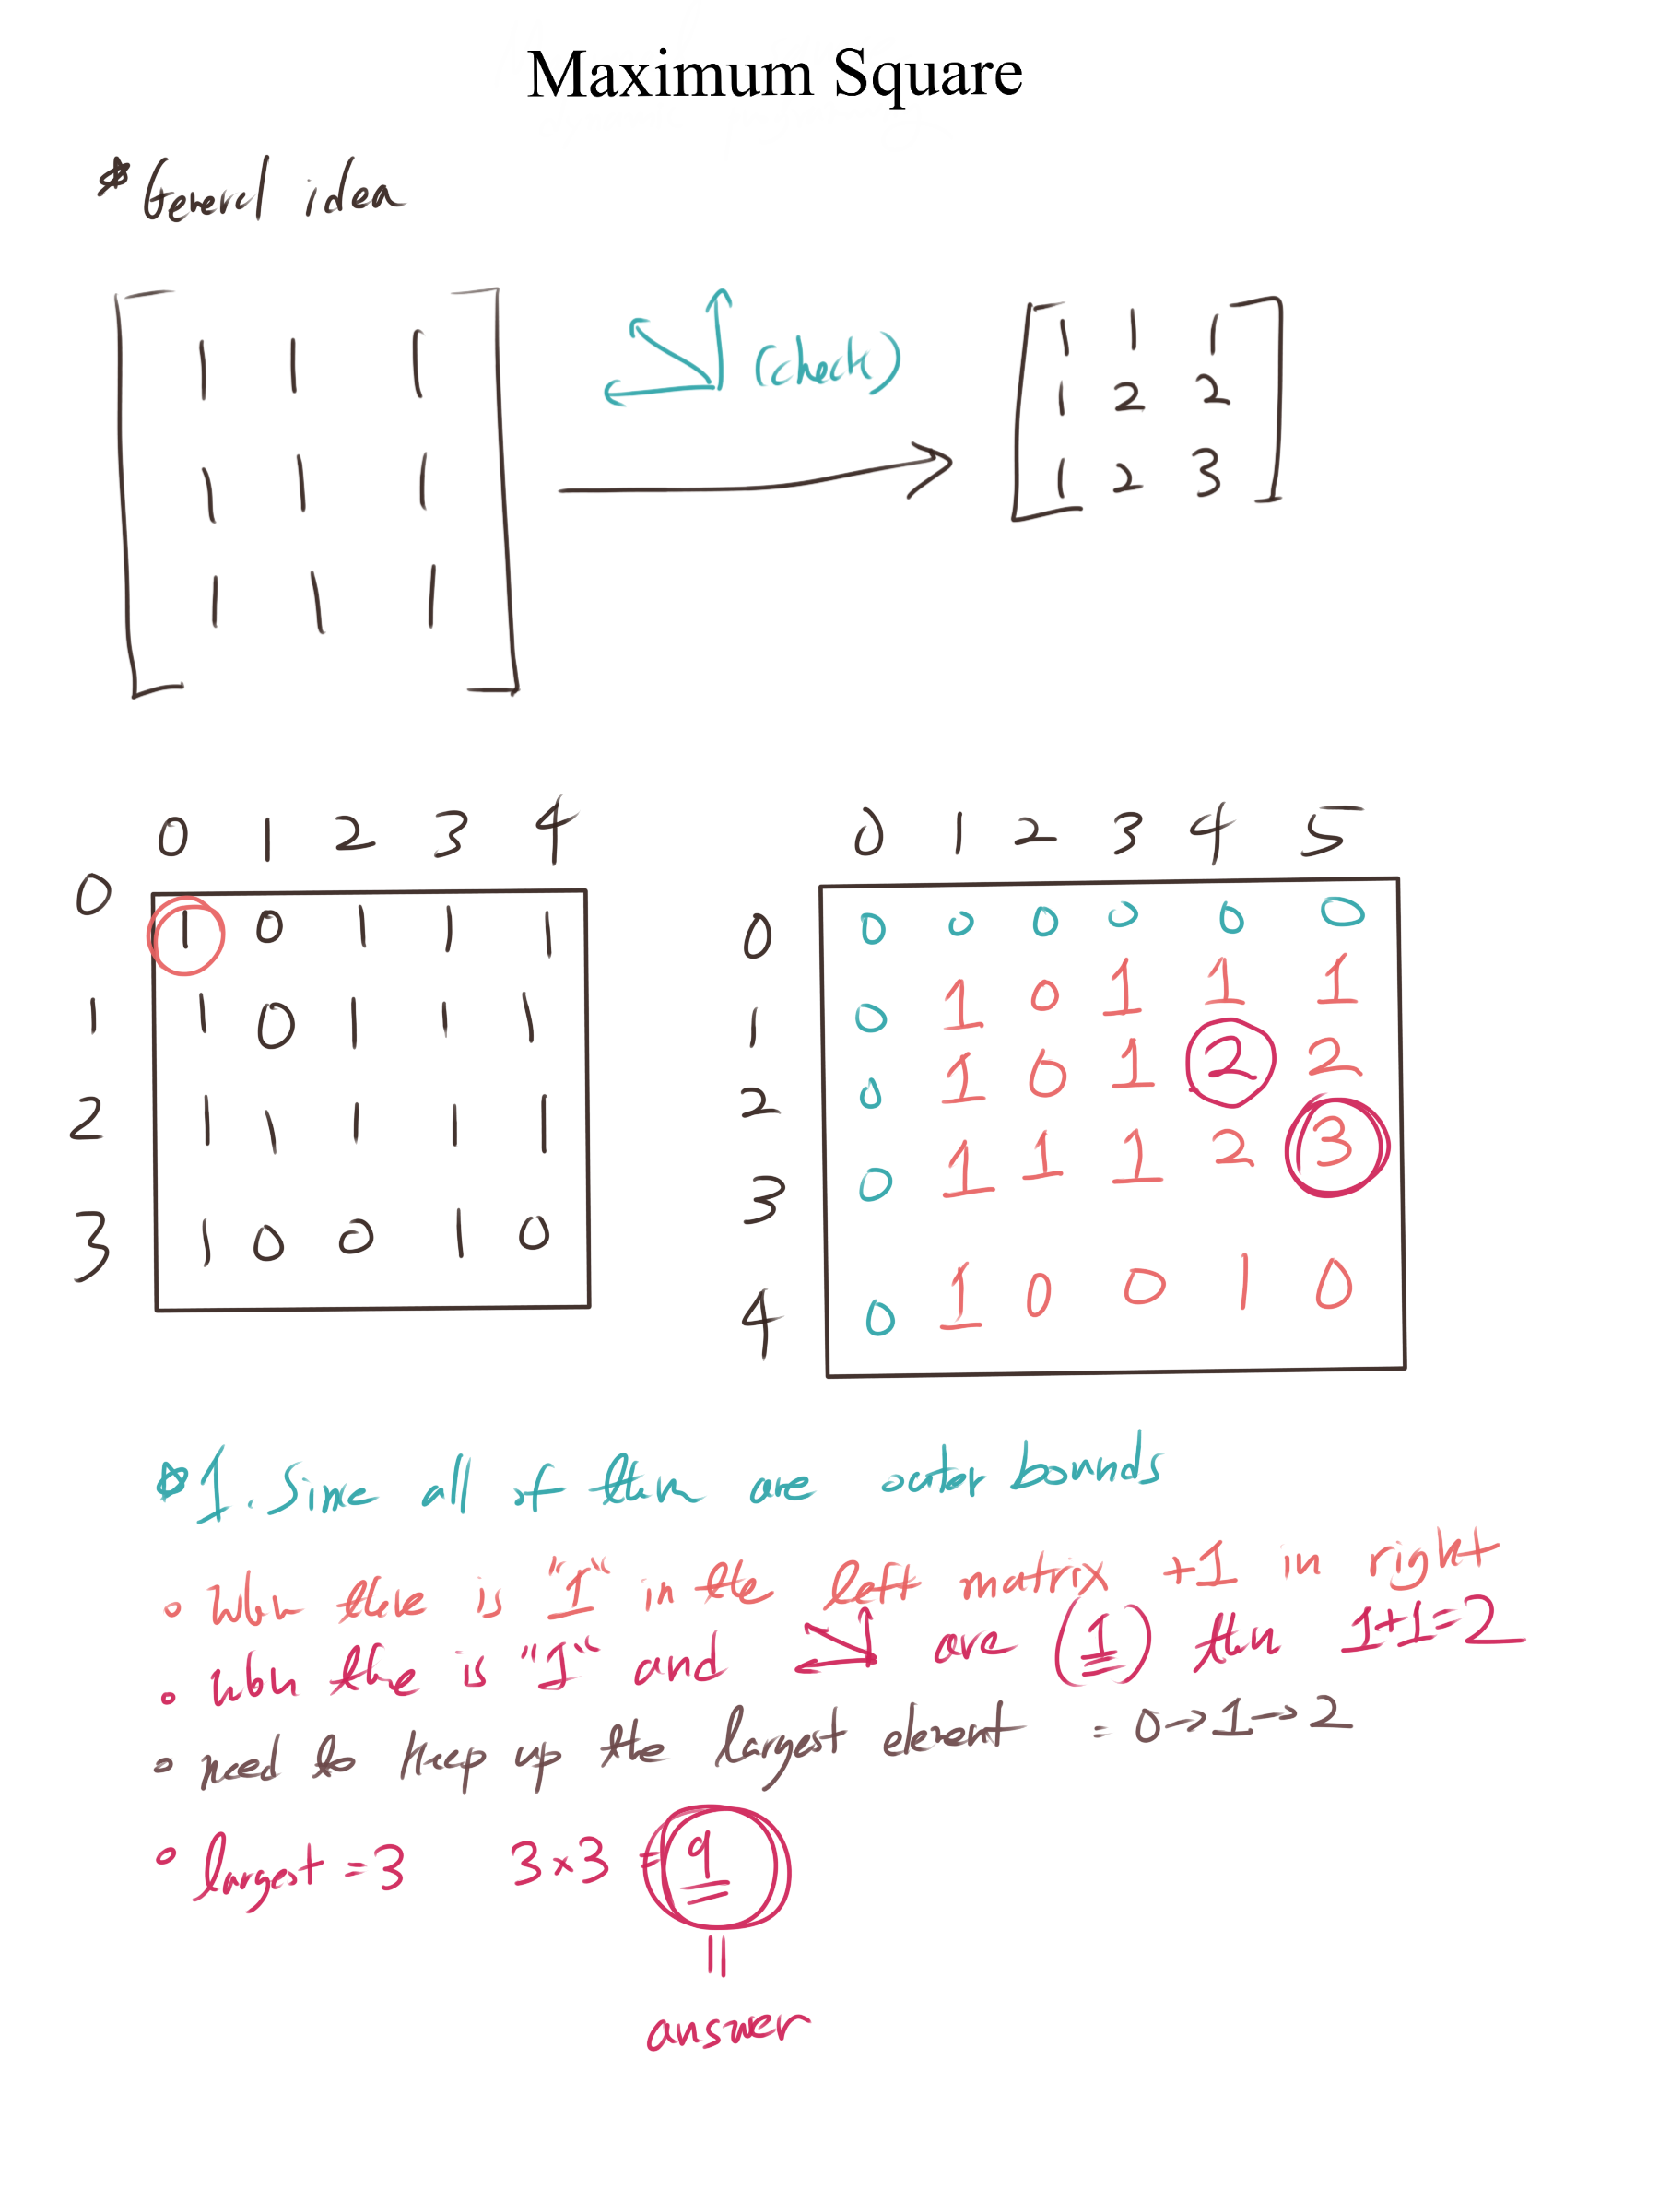 Maximum Square
* General idea
1 1 1
1 1 1
1 1 1
(check)
1 1 1
1 2 2
1 2 3
0 1 2 3 4
0 1 0 1 1 1
1 1 0 1 1 1
2 1 1 1 1 1
3 1 0 0 1 0
0 1 2 3 4 5
0 0 0 0 0 0 0
1 0 1 0 1 1 1
2 0 1 0 1 2 2
3 0 1 1 1 2 3
4 0 1 0 0 1 0
1. Since all of them are outer bounds
When there is "1" in the left matrix +1 in right
when there is "1" and are (1) then 1+1=2
need to keep up the largest element = 0→1→2
largest = 3 3×3 = 9
answer